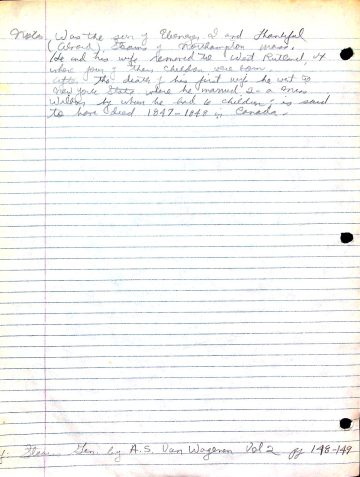 Notes: Was the son of Ebenezer 2 and Thankful
(Alvord) Stearns of Northampton Mass.
He and his wife removed to West Rutland, Vt
where four of their children were born.
After the death of his first wife he went to
New York State where he married 2- a Miss
by whom he had 6 children; is said
to have died 1847-1848 in Canada.
Gen. by A.S. Van Wagenen Vol 2 pg 148-149